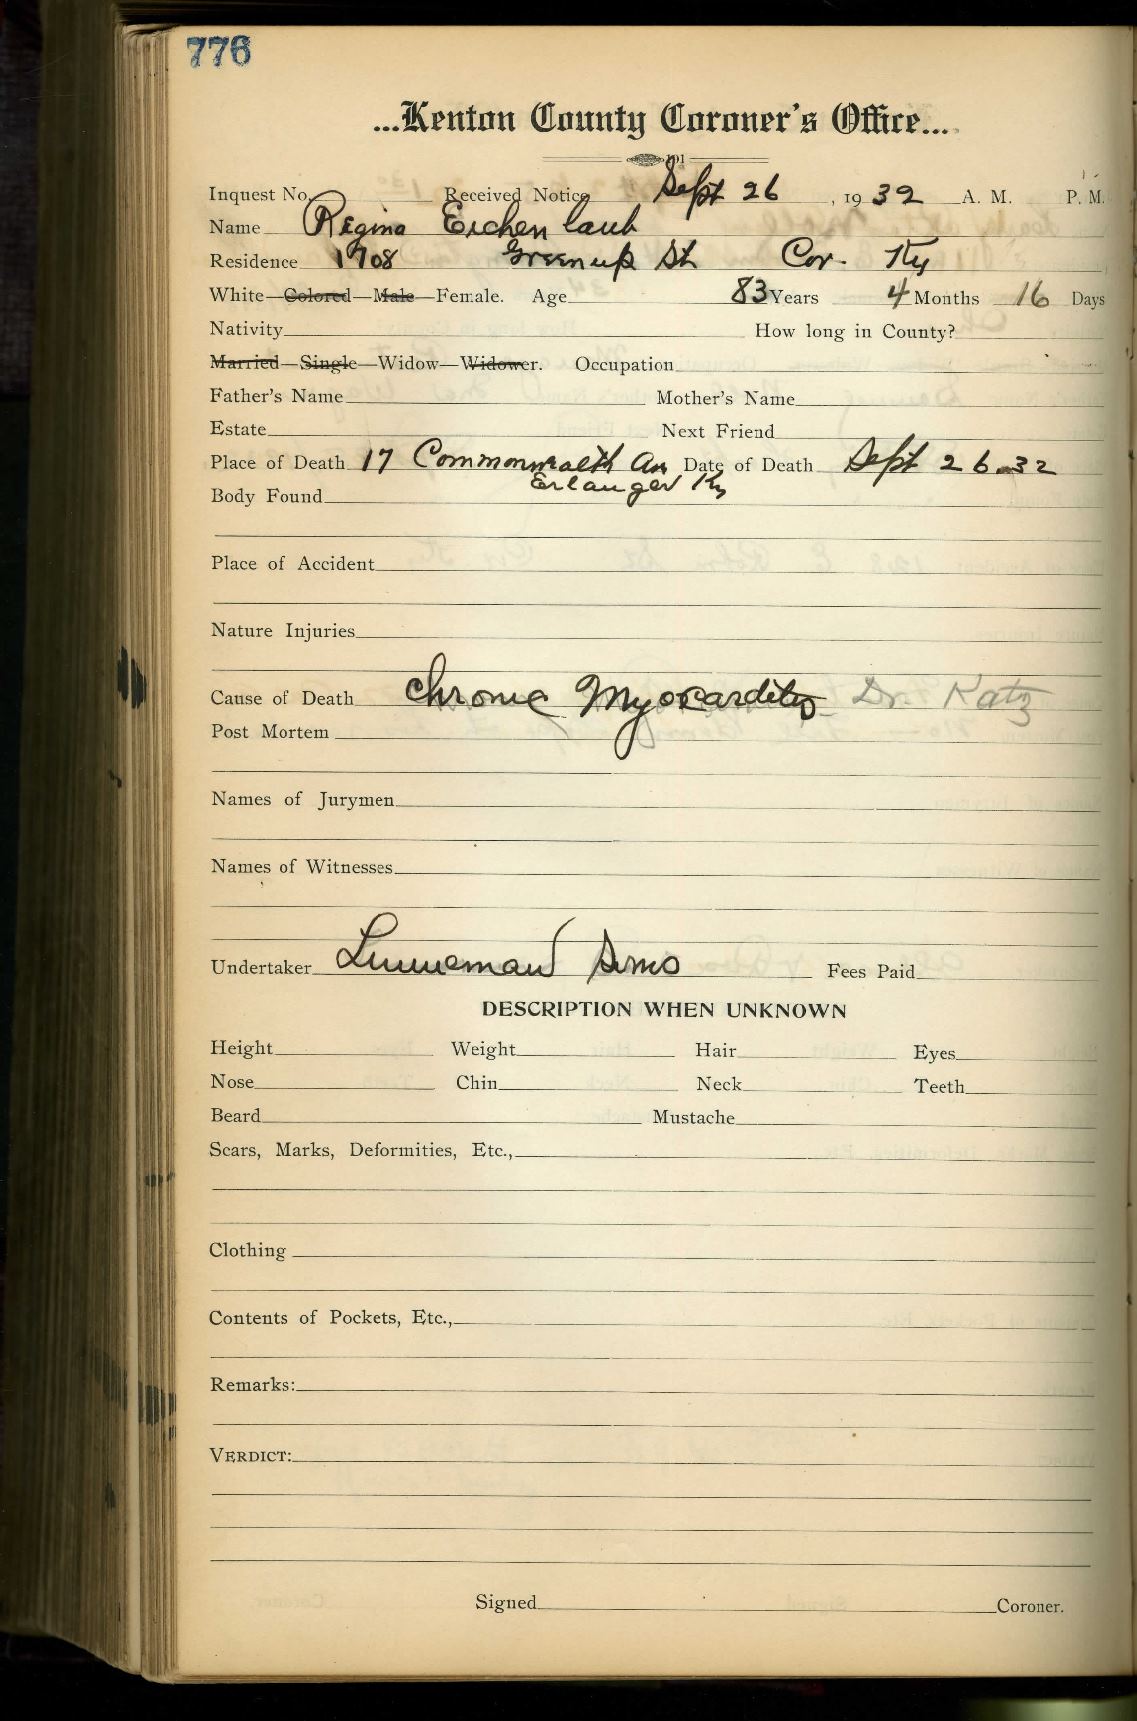 776
...Kenton County Coroner's Office...
101
Inquest No. Received Notice Sept 26, 1932 A. M. P. M.
Name Regina Eichenlaub
Residence 1708 Greenup St Cov. Ky
White—Colored—Male—Female. Age 83 Years 4 Months 16 Days
Nativity How long in County?
Married—Single—Widow—Widower. Occupation
Father's Name Mother's Name
Estate Next Friend
Place of Death 17 Commonwealth Av Date of Death Sept 26-32
Erlanger Ky
Body Found
Place of Accident
Nature Injuries
Cause of Death Chronic Myocarditis Dr. Katz
Post Mortem
Names of Jurymen
Names of Witnesses
Undertaker Linneman Sons Fees Paid
DESCRIPTION WHEN UNKNOWN
Height Weight Hair Eyes
Nose Chin Neck Teeth
Beard Mustache
Scars, Marks, Deformities, Etc.,
Clothing
Contents of Pockets, Etc.,
Remarks:
VERDICT:
Signed Coroner.